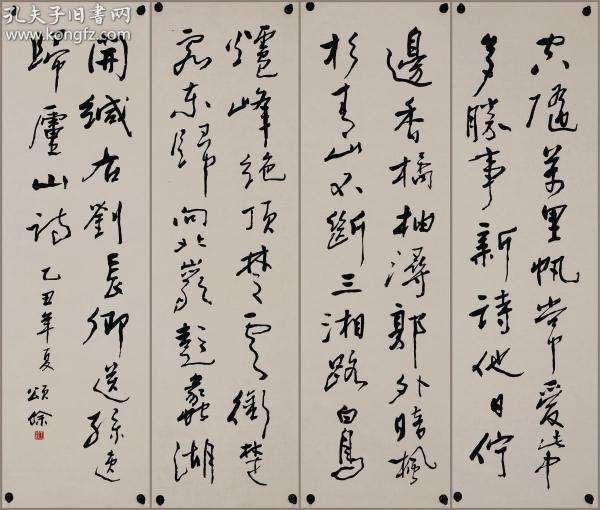 孔夫子旧书网
www.kongfz.com
空隨萬里帆常愛此中
多勝事新詩他日佇
邊香橘柚潯郭外暗楓
杉青山不斷三湘路白鳥
爐峰絕頂楚雲銜楚
客東歸向北巖彭蠡湖
開緘右劉長卿送孫逸
歸廬山詩
乙丑年夏
頌餘